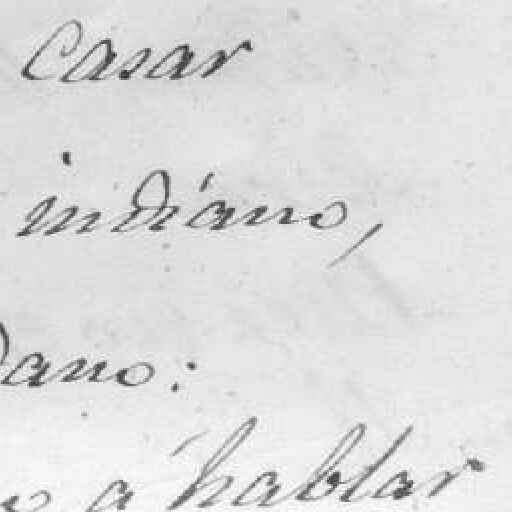 Casar
indiano,
dano:
á hablar